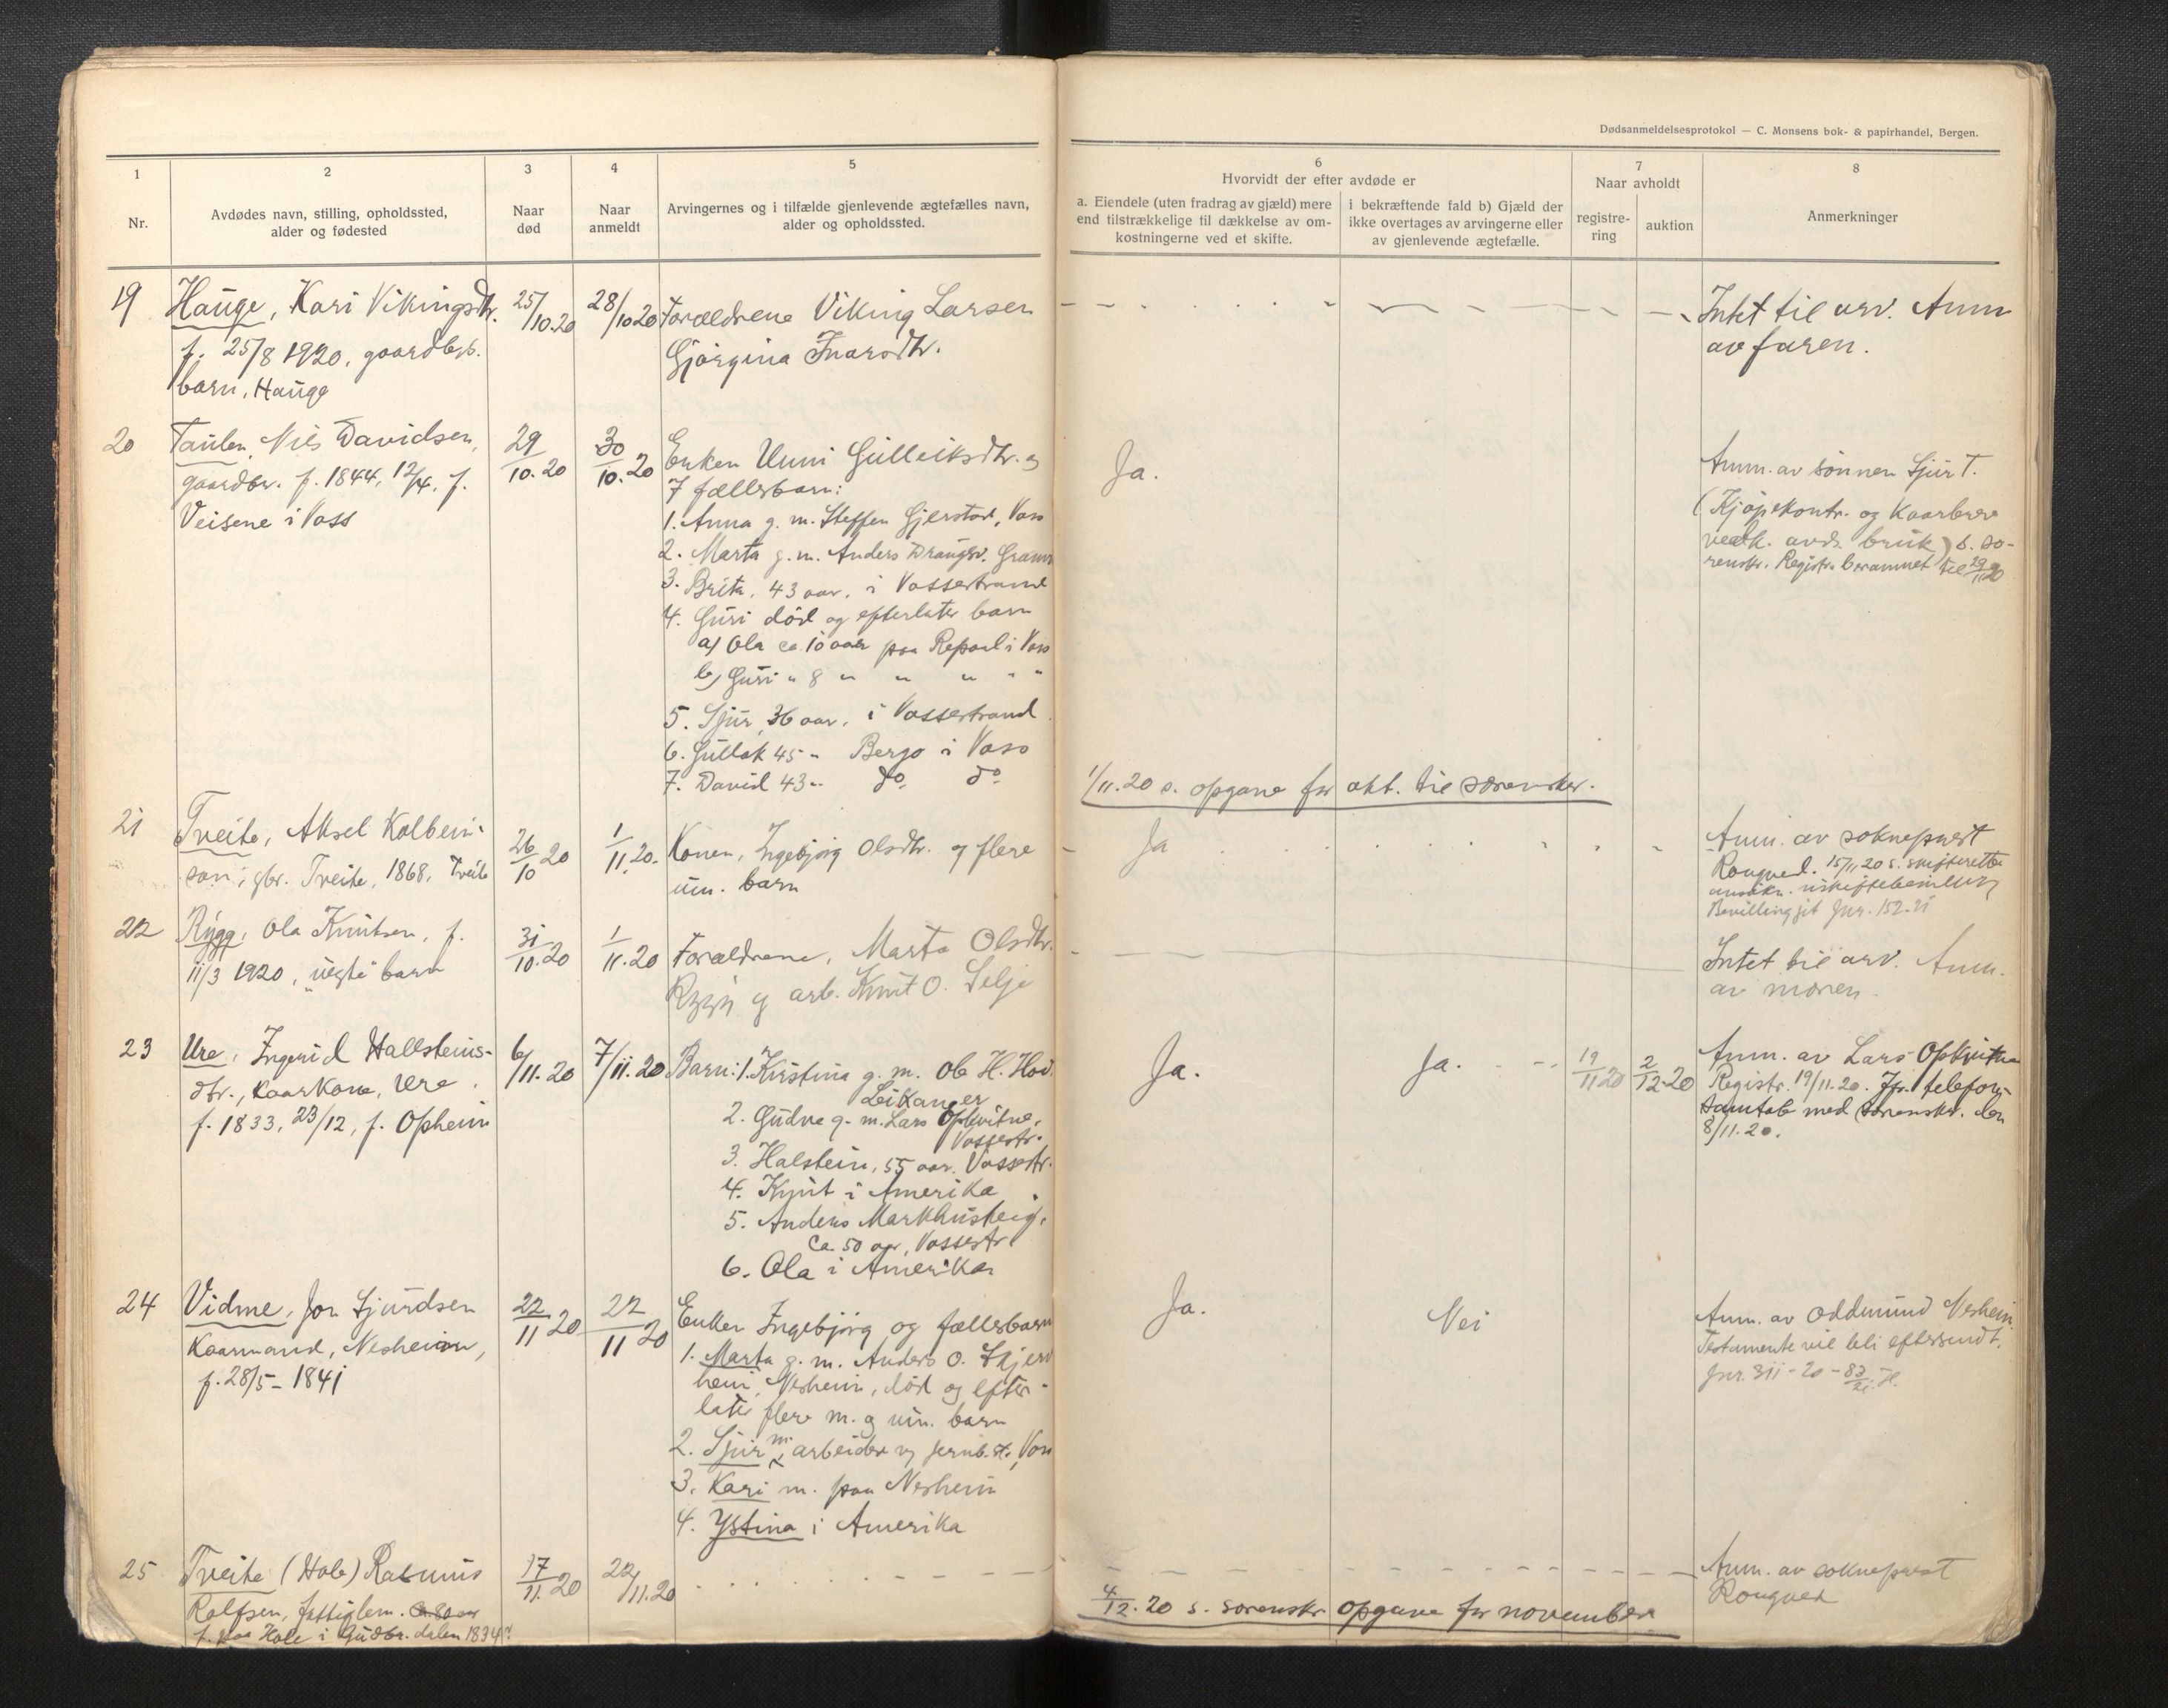 Dødsanmeldelsesprotokol — C. Monsens bok- & papirhandel, Bergen.
1 2 3 4 5 6 7 8
Nr.
Avdødes navn, stilling, opholdssted,
alder og fødested
Naar
død
Naar
anmeldt
Arvingernes og i tilfælde gjenlevende ægtefælles navn,
alder og opholdssted.
Hvorvidt der efter avdøde er
a. Eiendele (uten fradrag av gjæld) mere
end tilstrækkelige til dækkelse av om-
kostningerne ved et skifte.
i bekræftende fald b) Gjæld der
ikke overtages av arvingerne eller
av gjenlevende ægtefælle.
Naar avholdt
registre-
ring
auktion
Anmerkninger
19
Hauge, Kari Vikingsdtr.
f. 25/8 1920, gaardbr.
barn, Hauge
25/10.20
28/10 20
Forældrene Viking Larsen
Gjørgina Ivarsdtr.
Intet til arv. Anm
av faren.
20
Taulen, Nils Davidsen,
gaardbr. f. 1844, 12/4, f.
Veisene i Voss
29/10.20
30/10.20
Enken Unni Gulleiksdtr. og
7 fællesbarn:
1. Anna g. m. Steffen Gjerstad, Voss
2. Marta g. m. Anders Draugsv. Granv
3. Brita, 43 aar, i Vossestrand
4. Guri død og efterlater barn
a) Ola ca. 10 aar paa Repaal i Voss
b) Guri " 8 " " " " "
5. Sjur, 36 aar, i Vossestrand
6. Gullak 45 " Bergo i Voss
7. David 43 " do. do
Ja.
Anm. av sønnen Sjur T.
(Kjøpekontr. og Kaarbrev
vedk. avd. bruk) s. so-
renskr. Registr. berammet til 29/11 20
1/11.20 s. opgave for okt. til sorenskr.
21
Tveite, Aksel Kolbein-
son, gbr. Tveite, 1868, Tveite
26/10 20
1/11.20.
Konen, Ingebjørg Olsdtr. og flere
um. barn
Ja
Anm. av sokneprest
Rongved. 15/11 20 s. skifteretten
ansøkn. uskiftebevilling
Bevilling git Jnr. 152-21
22
Rygg, Ola Knutsen, f.
11/3 1920, "uegte" barn
31/10.20
1/11.20
Forældrene, Marta Olsdtr.
Rygg og arb. Knut O. Selje
Intet til arv. Anm.
av moren.
23
Ure, Ingerid Hallsteins-
dtr., kaarkone, Ure.
f. 1833, 23/12, f. Opheim
6/11.20
7/11.20
Barn: 1. Kristina g. m. Ole H. Hov.
Leikanger
2. Gudve g. m. Lars Opkvitne,
Vossestr.
3. Halstein, 55 aar. Vossestr.
4. Knut i Amerika
5. Anders Markhusteig,
ca. 50 aar, Vossestr
6. Ola i Amerika
Ja.
Ja.
19/11 20
2/12.20
Anm. av Lars Opkvitne
Registr. 19/11.20. Jfr. telefon-
samtale med sorenskr. den
8/11.20.
24
Vidme, Jon Sjurdsen
Kaarmand, Nesheim,
f. 28/5 - 1841
22/11 20
22/11 20
Enken Ingebjørg og fællesbarn
1. Marta g. m. Anders O. Skjerv
heim, Nesheim, død og efter-
later flere m. og um. barn
2. Sjur m. arbeider v. jernb. st., Voss
3. Kari m. paa Nesheim
4. Ystina i Amerika
Ja.
Nei
Anm. av Oddmund Nesheim.
Testamente vil bli eftersendt.
Jnr. 311-20-
25
Tveite (Hole) Rasmus
Rolfsen, fattiglem. ca. 80 aar
f. paa Hole i Gudbr. dalen 1834?
17/11.20
22/11.20
Anm. av sokneprest
Rongved
4/12.20 s. sorenskr. opgave for november